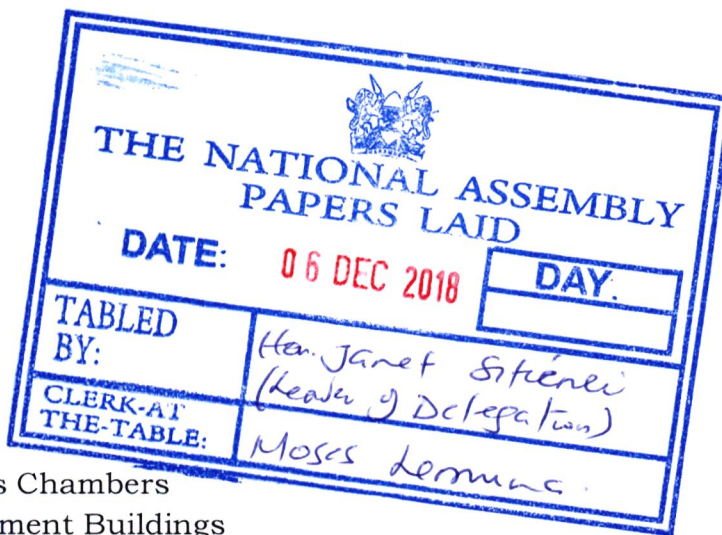 THE NATIONAL ASSEMBLY
PAPERS LAID
DATE: 06 DEC 2018 DAY:
TABLED
BY:
Hon. Janet Sitienei
(Leader of Delegation)
CLERK-AT
THE-TABLE:
Moses
s Chambers
ment Buildings